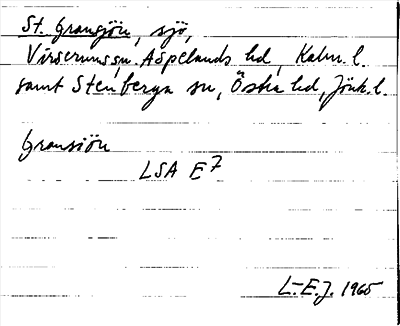 St. Gransjön, sjö,
Virserums sn, Aspelands hd, Kalm. l.
samt Stenberga sn, Östra hd, Jönk. l.
Gransiön
LSA E7
L-E.J. 1965